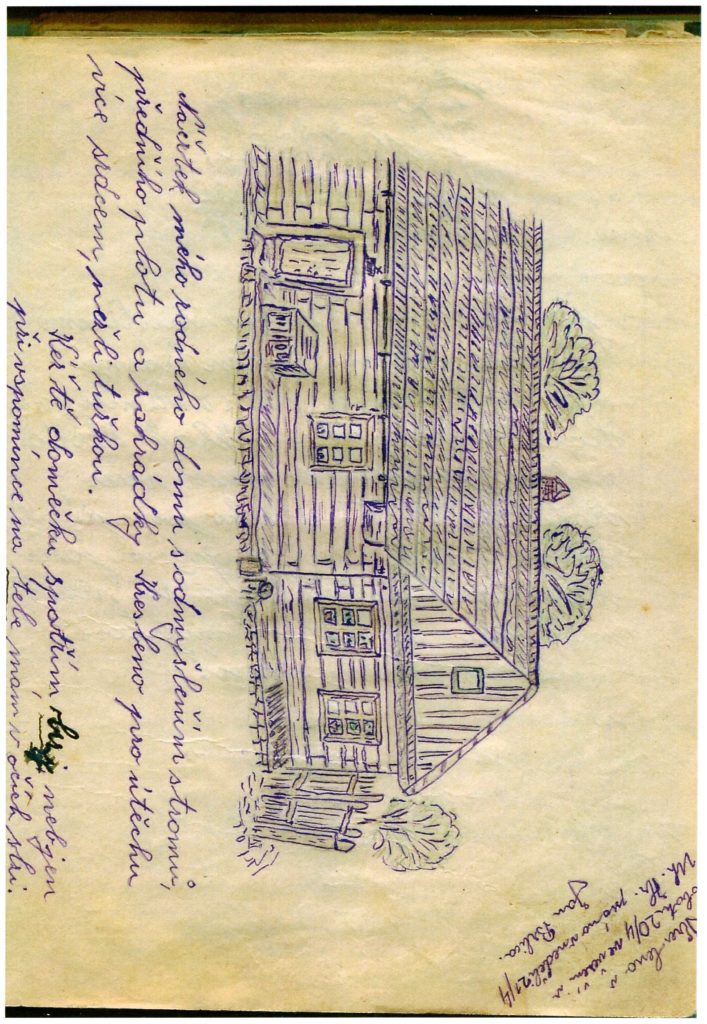 Náčrtek mého rodného domu s odmyšlením stromů,
předního plotu a zahrádky Kresleno pro útěchu
více srdcem, nežli tužkou.
Kéž tě domečku spatřím
při vzpomínce na tebe mám v očích slzi.
Kresleno v
sobotu 20/4 ve vězení v
Uh. Hr. psáno v neděli 21/4
Jan